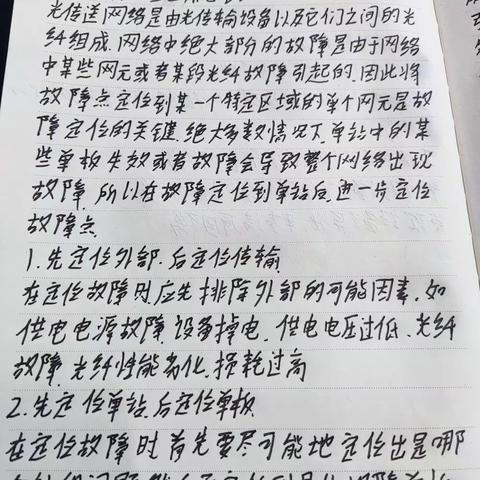 光传送网络是由光传输设备以及它们之间的光
纤组成.网络中绝大部分的故障是由于网络
中某些网元或者某段光纤故障引起的.因此将
故障点定位到某一个特定区域的单个网元是故
障定位的关键.绝大多数情况下,单站中的某
些单板失效或者故障会导致整个网络出现
故障.所以在故障定位到单站后,进一步定位
故障点
1.先定位外部.后定位传输
在定位故障时应先排除外部的可能因素.如
供电电源故障.设备掉电.供电电压过低.光纤
故障.光纤性能劣化.损耗过高
2.先定位单站.后定位单板
在定位故障时首先要尽可能地定位出是哪